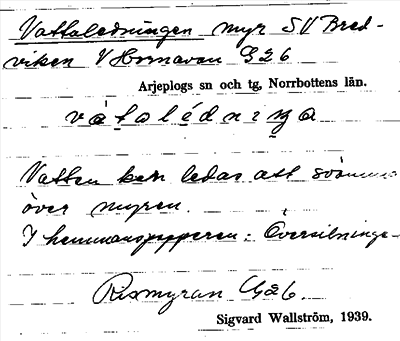 Vattaledningen myr SV Bred-
viken V Hornavan G26
Arjeplogs sn och tg, Norrbottens län.
vátalédniŋa
Vatten kan ledas att svämma
över myren.
I hemmanspapperen: Översilnings-
Rismyran G26.
Sigvard Wallström, 1939.